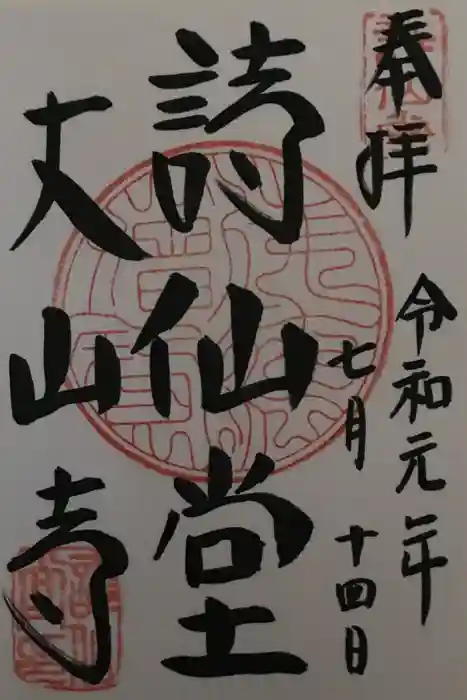 奉拝
令和元年
七月十四日
詩仙堂
丈山寺